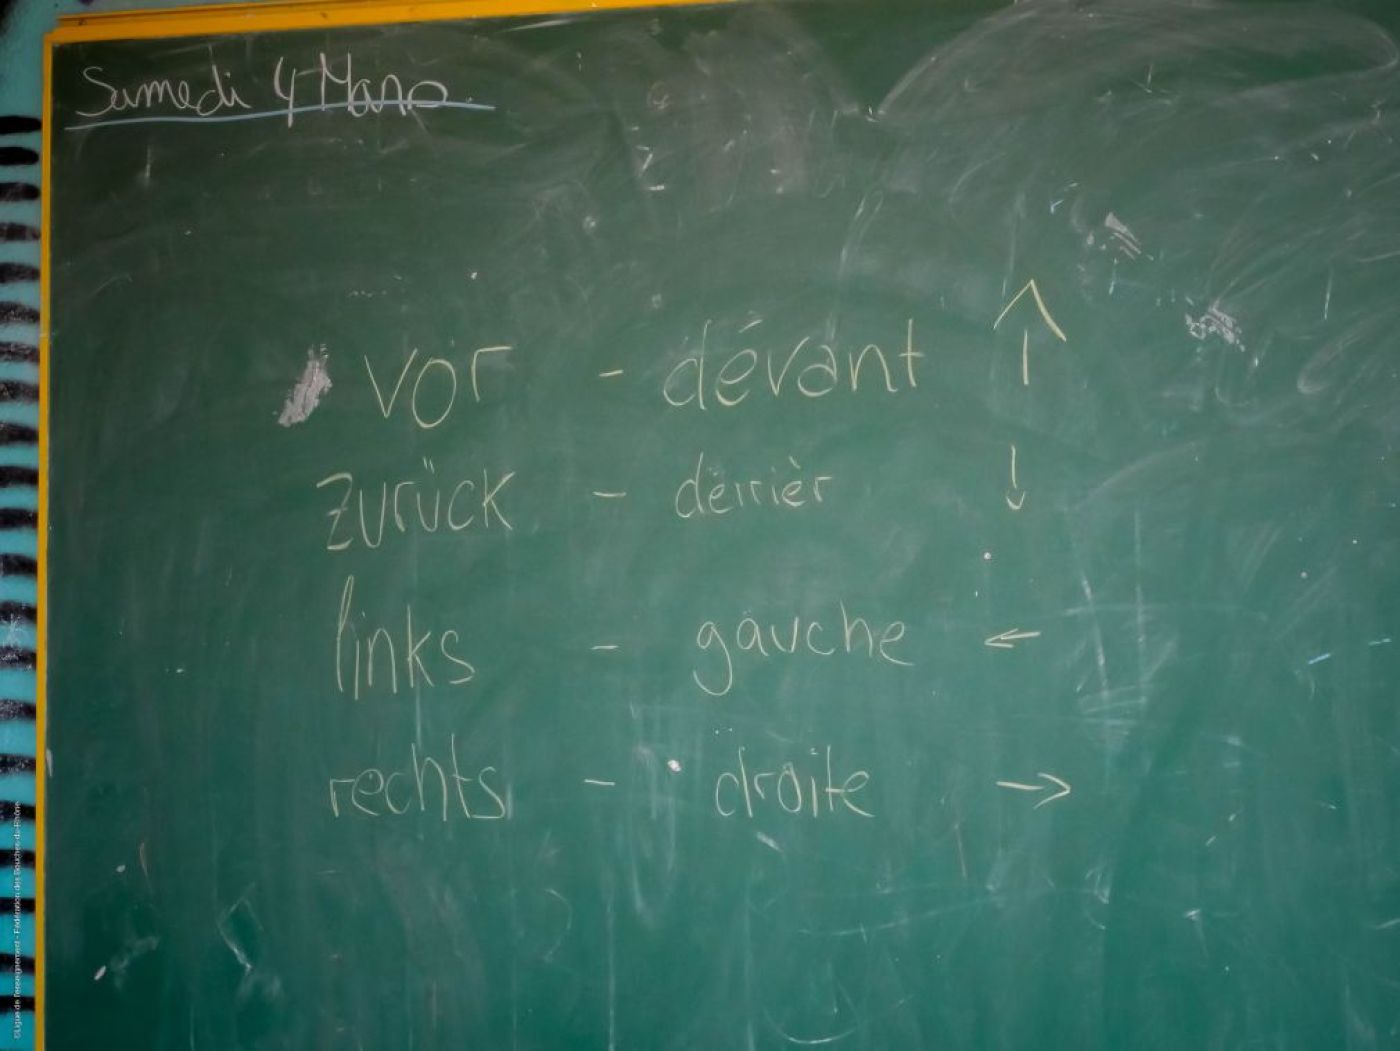 Samedi 4 Mars
vor - dévant ↑
zurück - dérrièr ↓
links - gauche ←
rechts - droite →
©Ligue de l'enseignement - Fédération des Bouches-du-Rhône